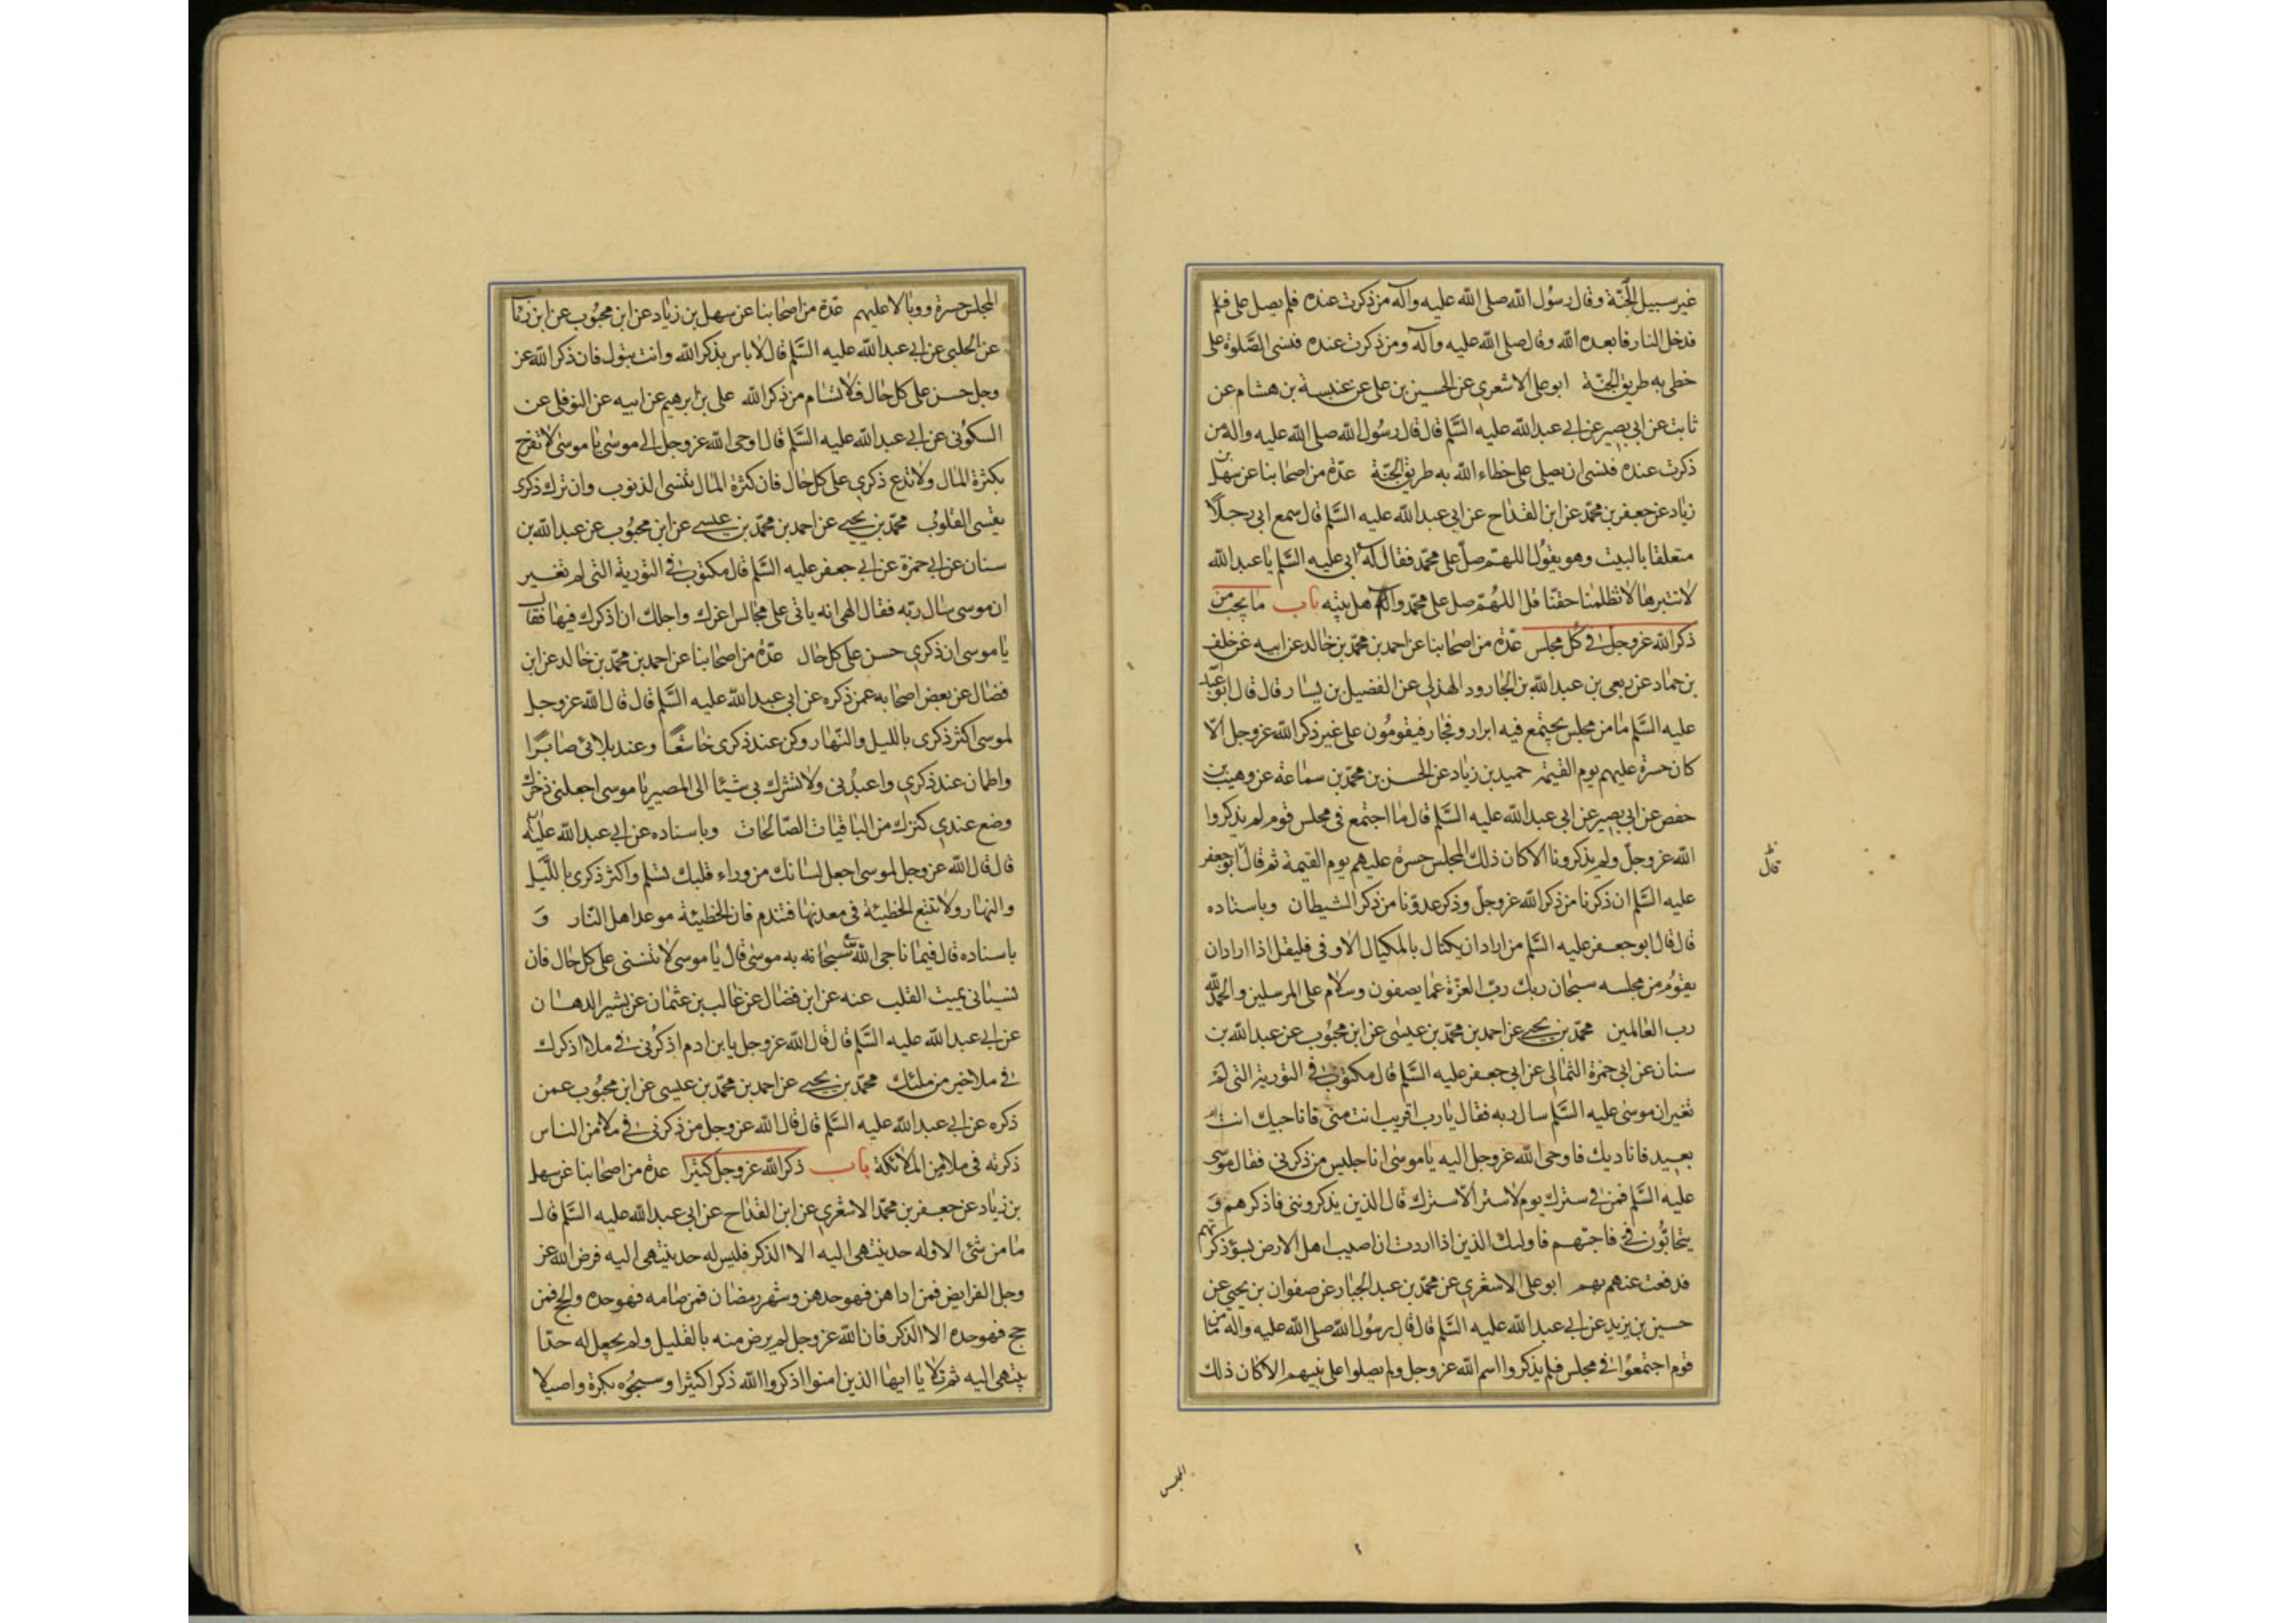 غير سبيل الجنّة وقال رسُول الله صلى الله عليه وآله من ذكرت عنده فلم يصل على فلم
فدخل النار فابعده الله وقال صلى الله عليه وآله ومن ذكرت عنده فنسى الصَّلوة على
خطى به طريق الجنّة ابو على الاشعرى عن الحسين بن على عن عنبسة بن هشام عن
ثابت عن ابي بصير عن ابي عبد الله عليه السَّلم قال قال رسُول الله صلى الله عليه واله من
ذكرت عنده فنسى ان يصلى على خطاء الله به طريق الجنّة عدّة من اصحابنا عن سهل بن
زياد عن جعفر بن محمّد عن ابن القداح عن ابي عبد الله عليه السَّلم قال سمع ابي رجلًا
متعلقا بالبيت وهو يقوُل اللهمّ صلّ على محمّد فقال له ابى عليه السَّلم يا عبد الله
لا تبترها لا تظلمنا حقنا قل اللهُمّ صل على محمّد وآله اهل بيته باب ما يجب من
ذكر الله عز وجلّ فى كُل مجلس عدّة من اصحابنا عن احمد بن محمّد بن خالد عن ابيه عن خلف
بن حماد عن ربعى بن عبد الله بن الجارود الهذلى عن الفضيل بن يسار قال قال ابو عبد
عليه السَّلم ما من مجلس يجتمع فيه ابرار وفجار فيقومُون على غير ذكر الله عز وجل الّا
كان حسرة عليهم يوم القيمة حميد بن زياد عن الحسن بن محمّد بن سماعة عن وهيب بن
حفص عن ابي بصير عن ابي عبد الله عليه السَّلم قال ما اجتمع فى مجلس قوم لم يذكروا
الله عز وجلّ ولم يذكرونا الا كان ذلك المجلس حسرة عليهم يوم القيمة ثم قال ابو جعفر
قال
عليه السَّلم ان ذكرنا من ذكر الله عز وجلّ وذكر عدوّنا من ذكر الشيطان وباسناده
قال قال ابو جعفر عليه السَّلم من اراد ان يكتال بالمكيال الاوفى فليقل اذا اراد ان
يقوُم من مجلسه سبحان ربك ربّ العزّة عما يصفون وسلام على المرسلين والحمد لله
رب العالمين محمّد بن يحيى عن احمد بن محمّد بن عيسى عن ابن محبُوب عن عبد الله بن
سنان عن ابي حمزة الثمالى عن ابي جعفر عليه السَّلم قال مكتوب فى التورية التى لم
تغير ان موسى عليه السَّلم سال ربه فقال يا رب اقريب انت منّى فاناجيك ام انت
بعيد فاناديك فاوحى الله عز وجل اليه يا موسى انا جليس من ذكرنى فقال موسى
عليه السَّلم فمن فى سترك يوم لا ستر الّا سترك قال الذين يذكروننى فاذكرهم وَ
يتحابُّون فىّ فاحبّهم فاولئك الذين اذا اردت ان اصيب اهل الارض بسوء ذكرتهم
فدفعت عنهم بهم ابو على الاشعرى عن محمّد بن عبد الجبار عن صفوان بن يحيى عن
حسين بن يزيد عن ابي عبد الله عليه السَّلم قال قال رسُول الله صلى الله عليه واله ما من
قوم اجتمعُوا فى مجلس فلم يذكروا اسم الله عز وجل ولم يصلوا على نبيهم الا كان ذلك
المجلس
المجلس حسرة ووبالا عليهم عدّة من اصحابنا عن سهل بن زياد عن ابن محبُوب عن ابن رئاب
عن الحلبى عن ابي عبد الله عليه السَّلم قال لا باس بذكر الله وانت تبول فان ذكر الله عز
وجل حسن على كل حال فلا تسام من ذكر الله على بن ابرهيم عن ابيه عن النوفلى عن
السكُونى عن ابي عبد الله عليه السَّلم قال اوحى الله عز وجل الى موسى يا موسى لا تفرح
بكثرة المال ولا تدع ذكرى على كل حال فان كثرة المال تنسى الذنوب وان ترك ذكرى
يقسى القلوُب محمّد بن يحيى عن احمد بن محمّد بن عيسى عن ابن محبُوب عن عبد الله بن
سنان عن ابي حمزة عن ابي جعفر عليه السَّلم قال مكتوب فى التورية التى لم تغير
ان موسى سال ربّه فقال الهى انه ياتى على مجالس اعزك واجلك ان اذكرك فيها فقال
يا موسى ان ذكرى حسن على كل حال عدّة من اصحابنا عن احمد بن محمّد بن خالد عن ابن
فضال عن بعض اصحابه عمن ذكره عن ابي عبد الله عليه السَّلم قال قال الله عز وجل
لموسى اكثر ذكرى بالليل والنّهار وكن عند ذكرى خاشعًا وعند بلائى صابرًا
واطمان عند ذكرى واعبدُنى ولا تشرك بى شيئا الى المصير يا موسى اجعلنى ذخرك
وضع عندى كنزك من الباقيات الصّالحات وباسناده عن ابي عبد الله عليه
قال قال الله عز وجل لموسى اجعل لسانك من وراء قلبك تسلم واكثر ذكرى بالليل
والنهار ولا تتبع الخطيئة فى معدنها فتندم فان الخطيئة موعد اهل النّار وَ
باسناده قال فيما ناجى الله سبحانه به موسى قال يا موسى لا تنسنى على كل حال فان
نسيانى يميت القلب عنه عن ابن فضال عن غالب بن عثمان عن بشير الدهان
عن ابي عبد الله عليه السَّلم قال قال الله عز وجل يا بن ادم اذكُرنى فى ملا اذكرك
فى ملا خير من ملئك محمّد بن يحيى عن احمد بن محمّد بن عيسى عن ابن محبُوب عمن
ذكره عن ابي عبد الله عليه السَّلم قال قال الله عز وجل من ذكرنى فى ملا من الناس
ذكرته فى ملا من الملائكة باب ذكر الله عز وجل كثيرا عدة من اصحابنا عن سهل
بن زياد عن جعفر بن محمّد الاشعرى عن ابن القداح عن ابي عبد الله عليه السَّلم قال
ما من شئ الا وله حد ينتهى اليه الا الذكر فليس له حد ينتهى اليه فرض الله عز
وجل الفرايض فمن اداهن فهو حدهن وشهر رمضان فمن صامه فهو حده والحج فمن
حج فهو حده الا الذكر فان الله عز وجل لم يرض منه بالقليل ولم يجعل له حدّا
ينتهى اليه ثم تلا يا ايها الذين امنوا اذكروا الله ذكرا كثيرا وسبحُوه بكرة واصيلا